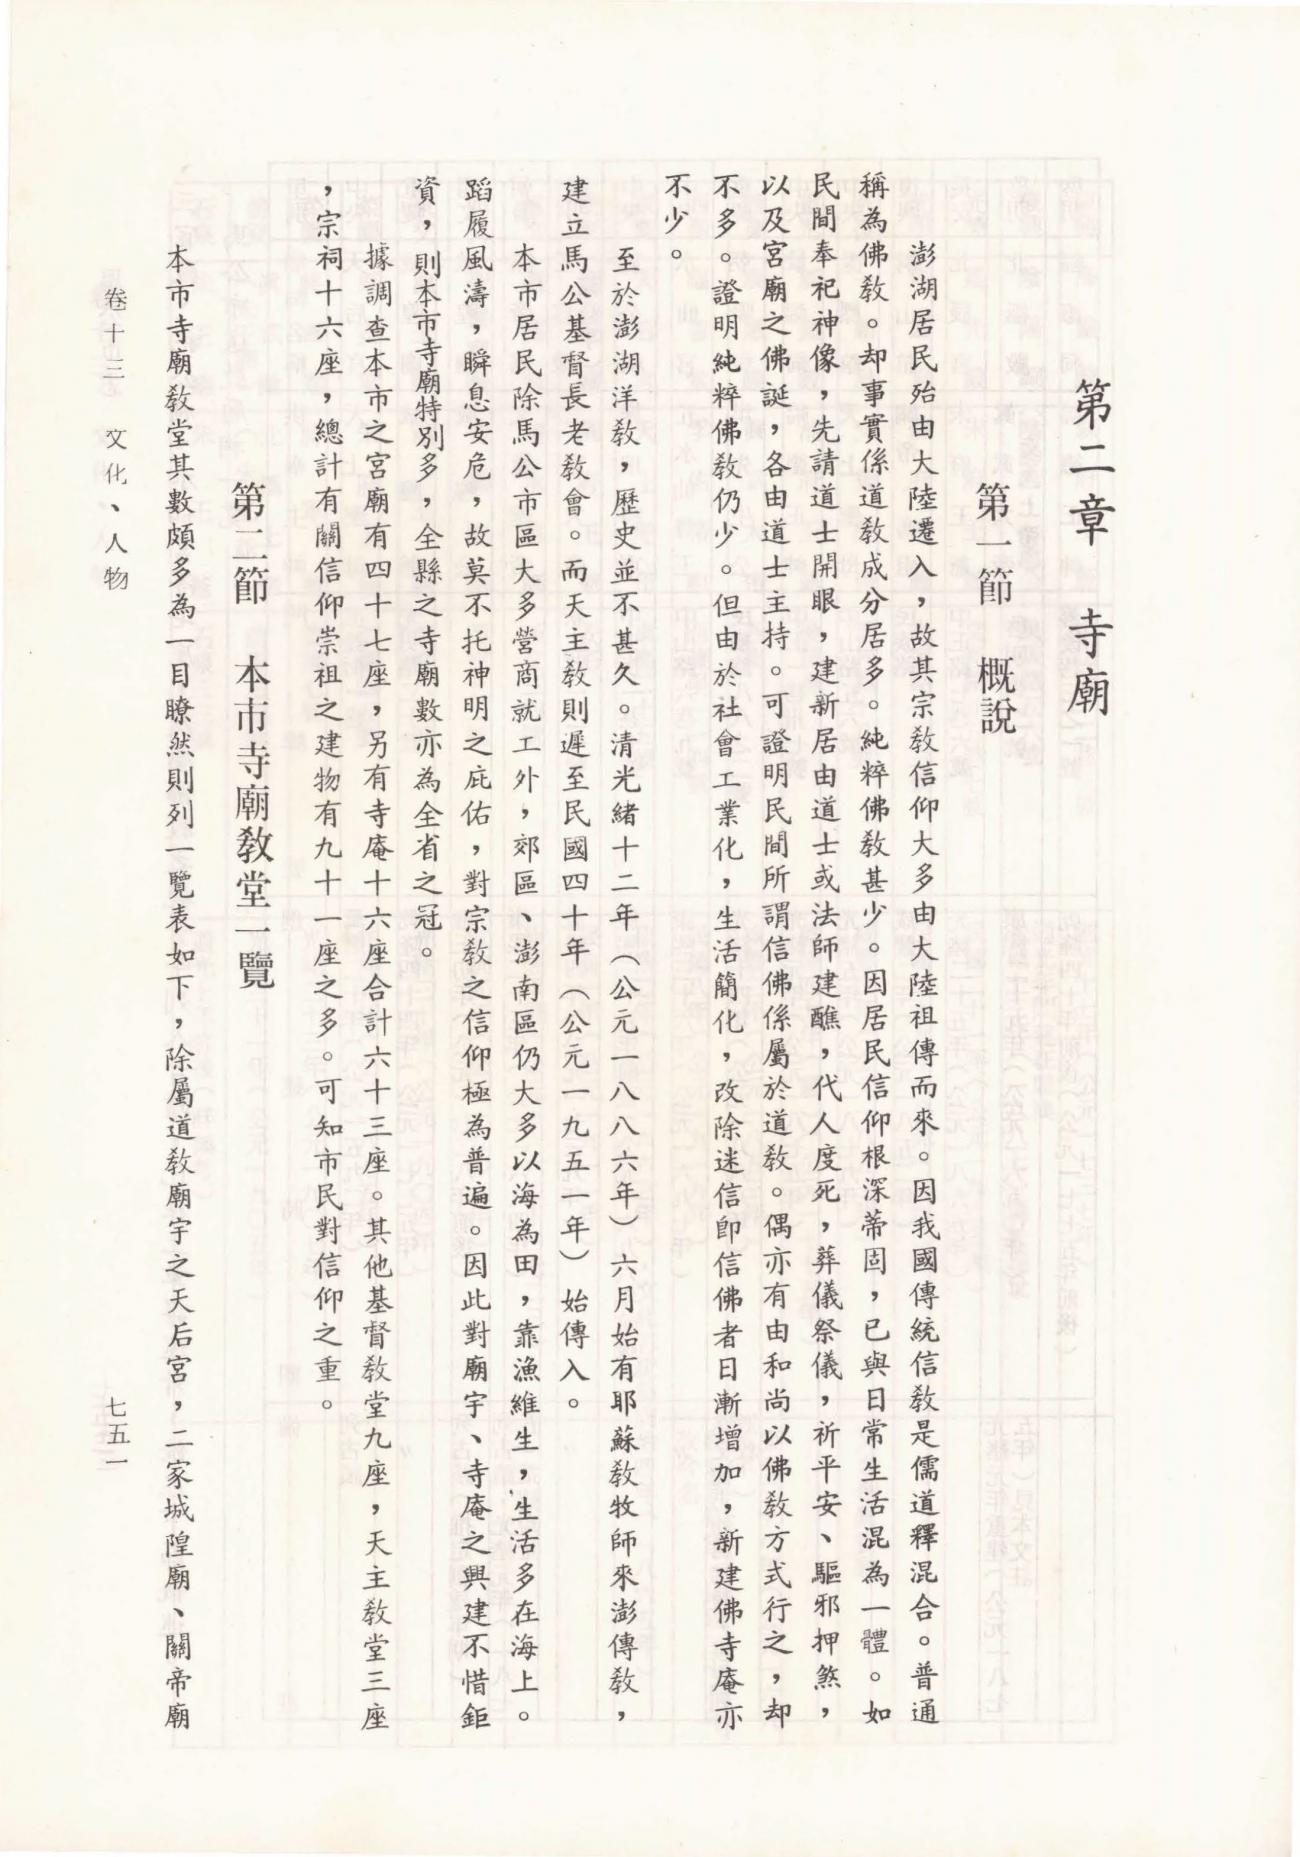 第二章　寺廟
第一節　概說
澎湖居民殆由大陸遷入，故其宗教信仰大多由大陸祖傳而來。因我國傳統信教是儒道釋混合。普通
稱為佛教。却事實係道教成分居多。純粹佛教甚少。因居民信仰根深蒂固，已與日常生活混為一體。如
民間奉祀神像，先請道士開眼，建新居由道士或法師建醮，代人度死，葬儀祭儀，祈平安、驅邪押煞，
以及宮廟之佛誕，各由道士主持。可證明民間所謂信佛係屬於道教。偶亦有由和尚以佛教方式行之，却
不多。證明純粹佛教仍少。但由於社會工業化，生活簡化，改除迷信即信佛者日漸增加，新建佛寺庵亦
不少。
至於澎湖洋教，歷史並不甚久。清光緒十二年（公元一八八六年）六月始有耶蘇教牧師來澎傳教，
建立馬公基督長老教會。而天主教則遲至民國四十年（公元一九五一年）始傳入。
本市居民除馬公市區大多營商就工外，郊區、澎南區仍大多以海為田，靠漁維生，生活多在海上。
蹈履風濤，瞬息安危，故莫不托神明之庇佑，對宗教之信仰極為普遍。因此對廟宇、寺庵之興建不惜鉅
資，則本市寺廟特別多，全縣之寺廟數亦為全省之冠。
據調查本市之宮廟有四十七座，另有寺庵十六座合計六十三座。其他基督教堂九座，天主教堂三座
，宗祠十六座，總計有關信仰崇祖之建物有九十一座之多。可知市民對信仰之重。
第二節　本市寺廟教堂一覽
本市寺廟教堂其數頗多為一目瞭然則列一覽表如下，除屬道教廟宇之天后宮，二家城隍廟、關帝廟
卷十三　文化、人物
七五一